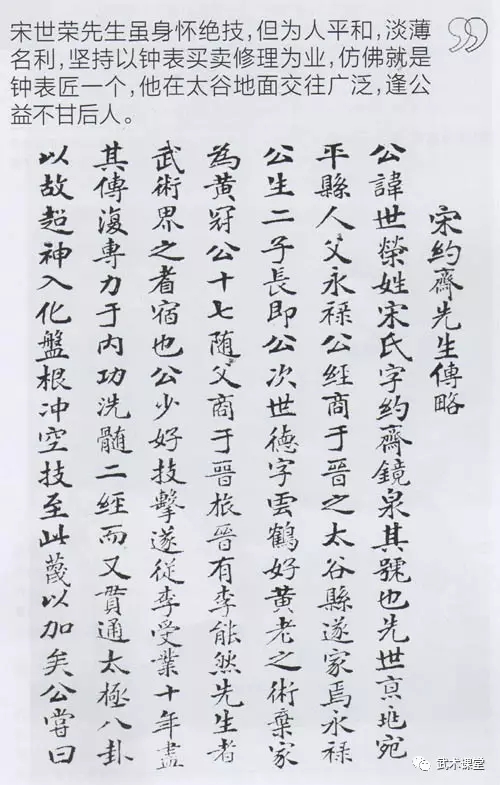 宋世荣先生虽身怀绝技，但为人平和，淡薄
名利，坚持以钟表买卖修理为业，仿佛就是
钟表匠一个，他在太谷地面交往广泛，逢公
益不甘后人。
宋約齋先生傳略
公諱世榮姓宋氏字約齋鏡泉其號也先世京兆宛
平縣人父永禄公經商于晉之太谷縣遂家焉永禄
公生二子長即公次世德字雲鶴好黄老之術棄家
為黄冠公十七随父商于晉旅晉有李能然先生者
武術界之耆宿也公少好技擊遂從李受業十年盡
其傳復專力于内功洗髓二經而又貫通太極八卦
以故超神入化盤根冲空技至此蔑以加矣公嘗曰
武术课堂